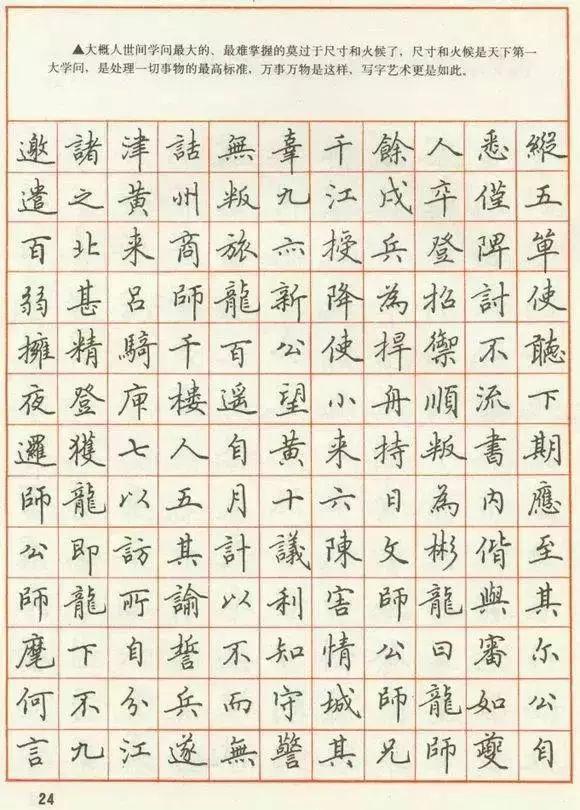 ▲大概人世间学问最大的、最难掌握的莫过于尺寸和火候了，尺寸和火候是天下第一
大学问，是处理一切事物的最高标准，万事万物是这样，写字艺术更是如此。
邀諸津詰無辜千餘人悉縱
遣之黄州叛九江戍卒僅五
百北来商旅亦授兵登陴單
弱甚吕師龍新降為招討使
擁精騎千百公使捍禦不聽
夜登庾樓遥望小舟順流下
邏獲七人自黄来持叛書期
師龍以五月十六日為内應
公即訪其計議陳文彬偕至
師龍所諭以利害師龍與其
麾下自誓不知情公曰審尔
何不分兵而守城師龍如公
言九江遂無警其兄師夔自
24